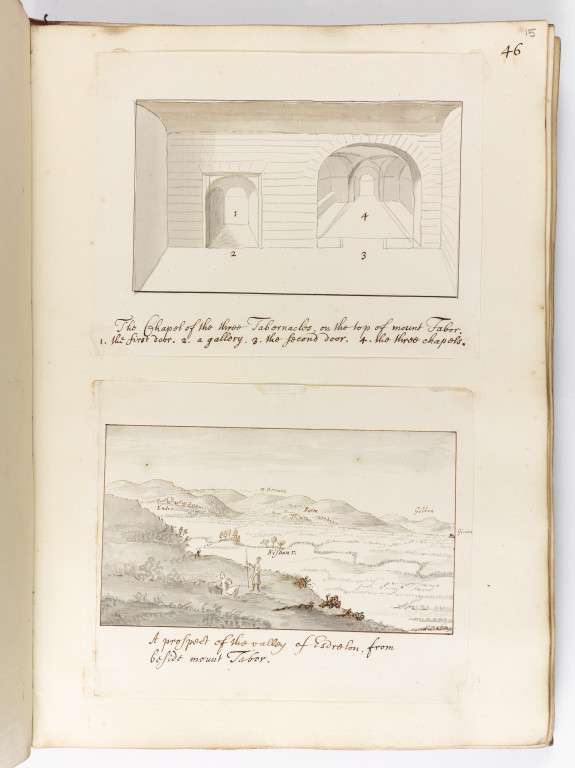 15
46
1
4
2
3
The Chapel of the three Tabernacles, on the top of mount Tabor.
1. the first door. 2. a gallery. 3. the second door. 4. the three chapels.
M. Hermon
Endor
Naim
Gilboa
Kishon r.
A prospect of the valley of Esdrelon, from
beside mount Tabor.